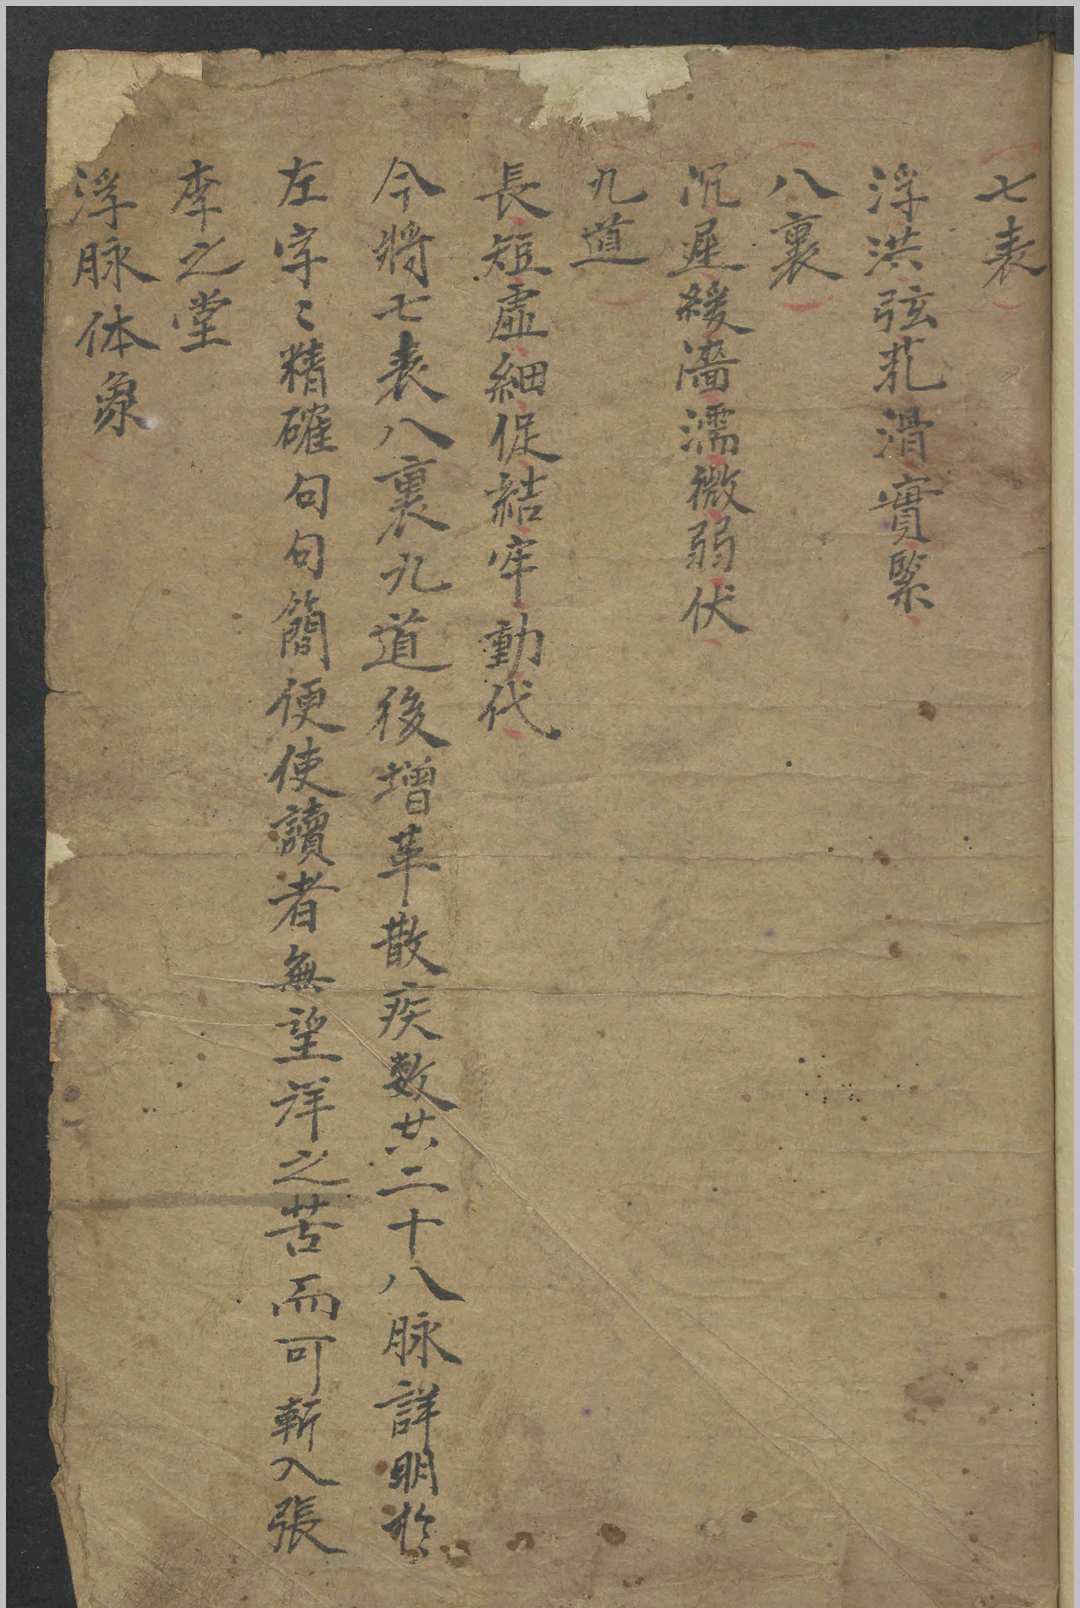 七表
浮洪弦芤滑實緊
八裏
沉遲緩濇濡微弱伏
九道
長短虛細促結牢動代
今將七表八裏九道後增革散疾数共二十八脉詳明於
左字〻精確句句簡便使讀者無望洋之苦而可斬入張
李之堂
浮脉体象